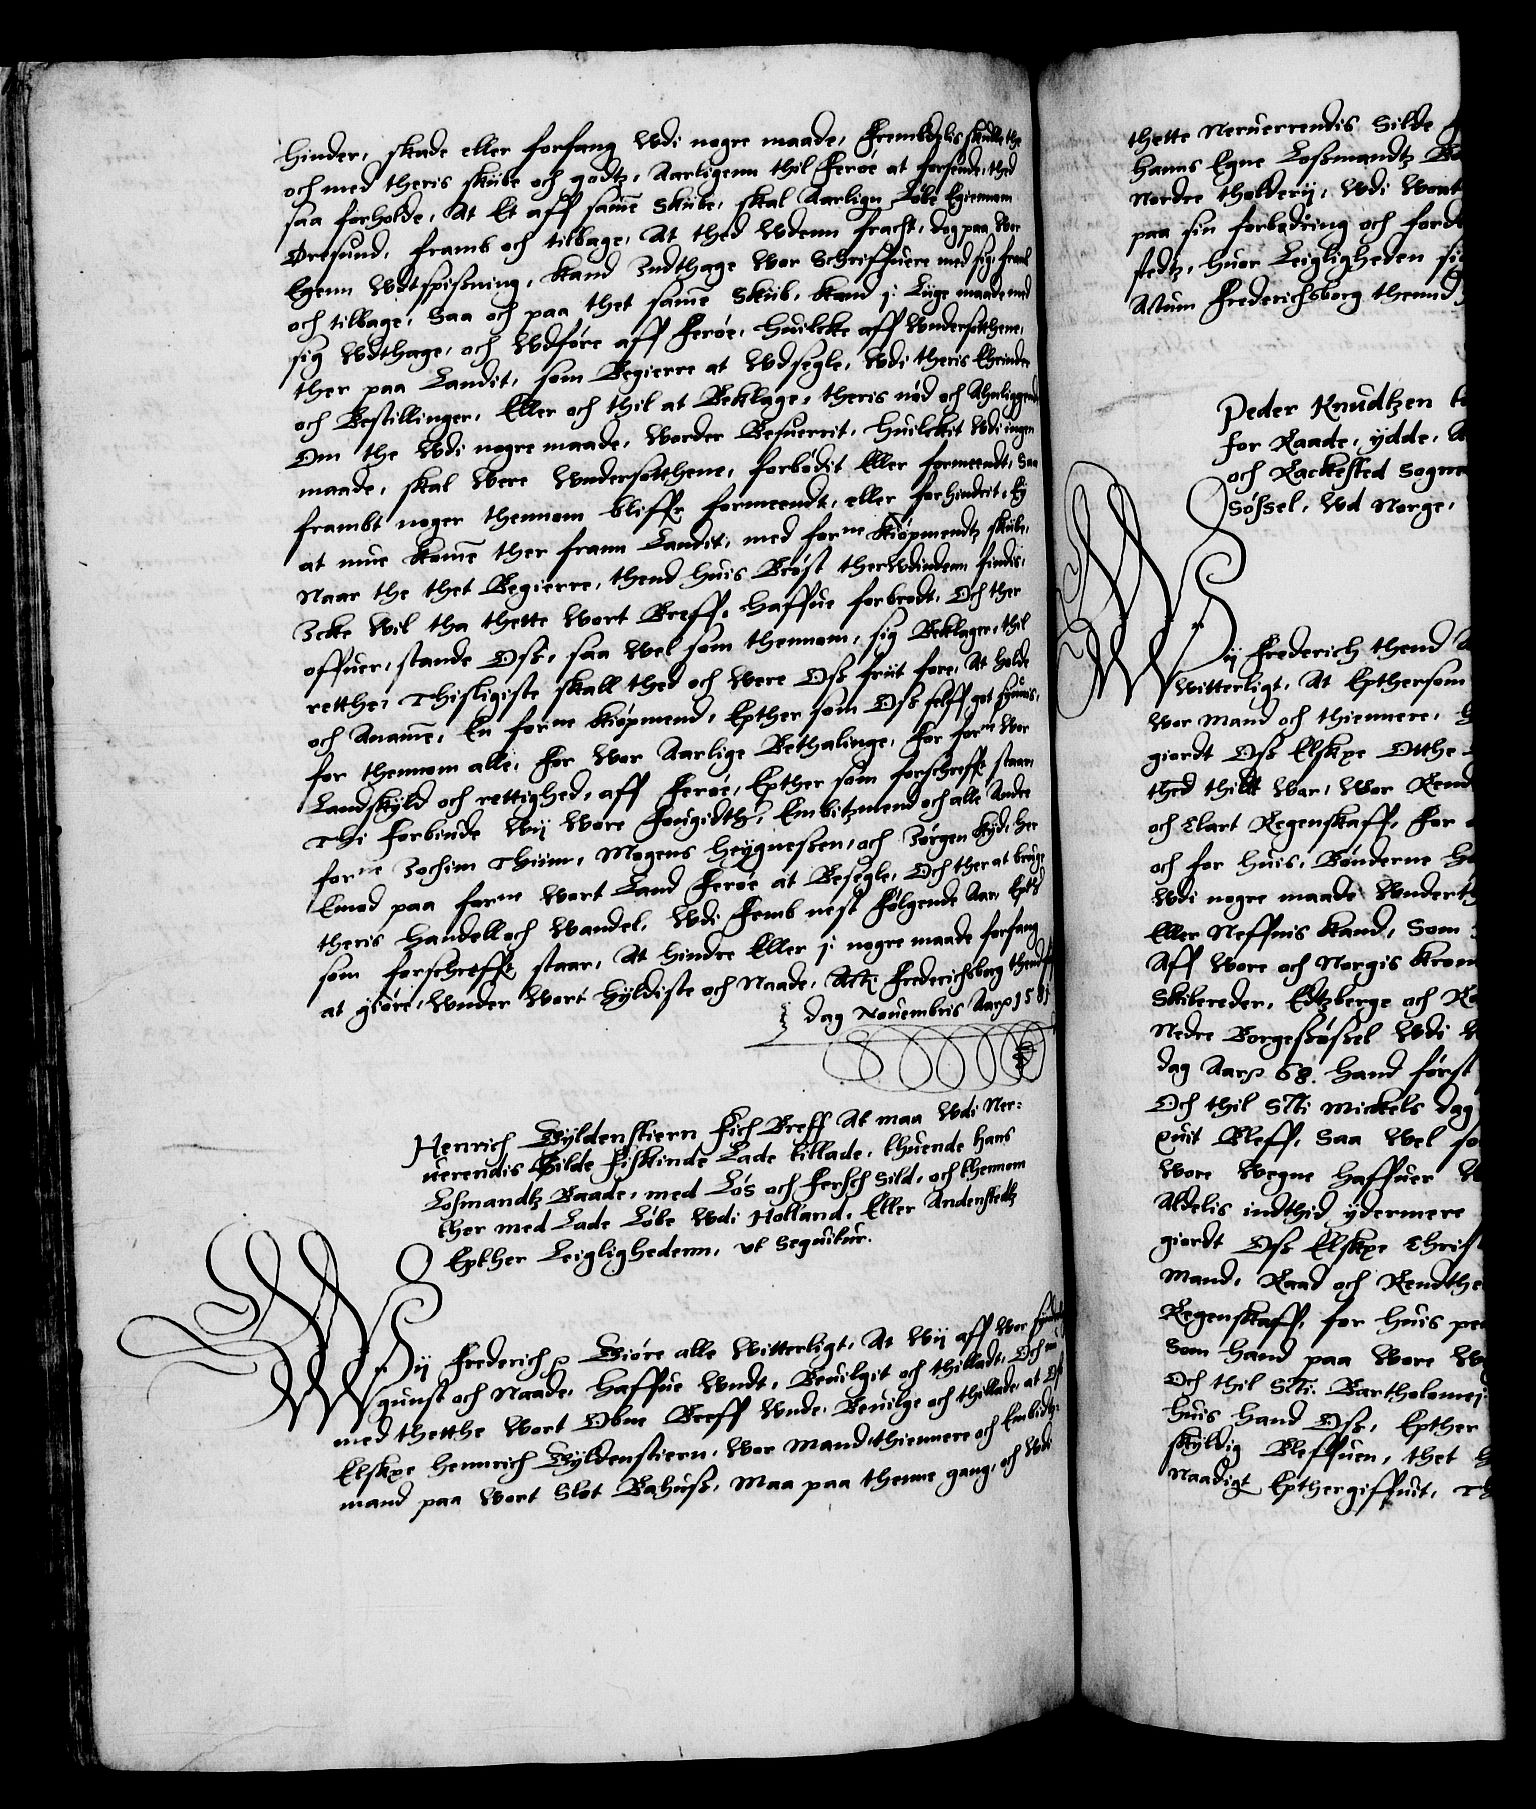 hinder, skade eller forfang Udi nogre maade, Frembdelis skulle the
och med theris skübe och godtz, Aarligenn thil Feröe at forsende, thed
saa forholde, At Et aff samme Skübe, skal Aarlign Löbe Egiennom
Öresund, framb och tilbage, At thed Udenn fracht, dog paa Vor
Egenn Udtspißning, kand Indthage Vor Schriffuere med sig, framb
och tilbage, Saa och paa thet samme Skiib, kand j Liige maade med
sig Udthage, och Udföre aff Feröe, Huilcke aff Undersotthene,
ther paa Landit, som Begierre at Udsegle, Udi theris Ehrinder
och Bestillinger, Eller och thil at Beklage, theris nöd och Ahnliggende
Om the Udi nogre maade, Worder Besuerrit, Huilckit Udi ingen
maade, skal Were Undersotthene, forbödit Eller formeendt, Saa
frambt noger thennom bliffr formeendt, eller forhindrit, Ey
at mue komme ther frann Landit, med forne kiöpmendtz skübe,
Naar the thet Begierre, thend huis Bröst therUdindenn findis,
Icke Wil tha thette Wort Breff, Haffue forbrodt, Och ther
offuer, stande Oß, saa Wel som thennom, sig Beklager, thil
retthe, Thisligiste skall thed och Were Oß friit fore, At holde
och Anamme, En forne kiöpmend, Epther som Oß selff got siunis,
for thennom alle, For Wor Aarlige Bethalinge, For forne Wor
Landskyld och rettighed, aff Feröe, Epther som forschreffit staar
Thi forbinde Wij Wore Fougidthr, Embitzmend och alle Andre
forne Jochim Thiim, Mogens Heÿgneßen, och Jörgen Kÿd, her
Emod paa forne Wort Land Feröe at Besegle, Och ther at bruge
theris Handell och Wandel, Udi Femb nest Fölgende Aar, Ept'
som forschreffit staar, At hindre Eller j nogre maade forfang
at giöre, Under Wort Hyldiste och Naade, Acti Frederichsborg thend
dag Nouembris Aar 1581
Henrich Gyldenstiern Fich Breff At maa Udi Ner-
uerendis Silde fiskinde Lade tillade, thuende hans
Loßmandtz Baade, med Lös och Fersch Sild, och thennom
ther med Lade Löbe Udi Holland, Eller Andenstedtz
Epther Leiglighedenn, ut Sequitur.
Wij Frederich Giöre alle Witterligt, At Wij aff Wor synderlig
gunst och Naade, Haffue Undt, Beuilgit och thilladt, Och nu
med thetthe Wort Obne Breff Unde, Beuilge och thillade, at Oß
Elskxe Hennrich Gyldenstiern, Wor Mand, thiennere och Embidtz-
mand paa Wort Slot Bahuß, Maa paa thenne gang, och Udi
thette Neruerrendis Silde
hanns Egne Loßmandtz
Nordre tholderÿ, Udi Wort
paa sin forbedring och
stedtz, huor Leigligheden
Actum Frederichsborg thennd
Peder Knudtzen
for Raade, ydde,
och Rackested Sogne
Sößel, Ud Norge,
Wij Frederich thend
Witterligt, At Epthersom
Wor Mand och thiennere,
giordt Oß Elskxe Otthe
thed thild War, Wor
och Clart Regenskaff, For
och for huis, Bönderne
Udi nogre maade
Eller Neffnis kand, Som
Aff Wore och Norgis
Skibereder, Edtzberge och
Nedre Borgeßößel Udi
dag Aar 68. Hand först
Och thil Scti Mickels dag
quit Bleff, Saa Wel
Wore Wegne Haffuer
Aldelis indthid ydermere
giordt Oß Elskxe
Mand, Raad och
Regenskaff, for huis
Som Hand paa Wore
Och thil Scti Bartholomej
huis Hand Oß, Epther
skyldig Bleffuen, thet
Naadigt Epthergiffuit,